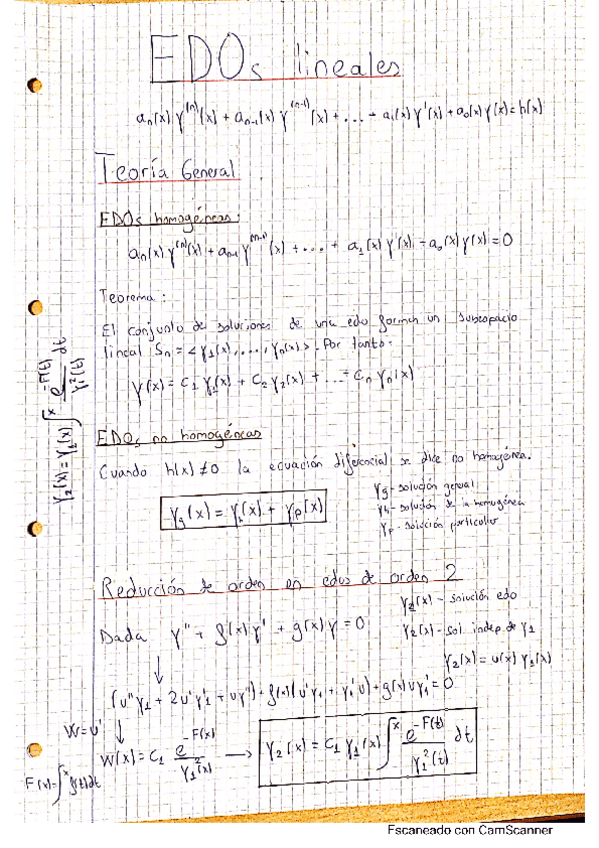 EDOs lineales
aₙ(x) y⁽ⁿ⁾(x) + aₙ₋₁(x) y⁽ⁿ⁻¹⁾(x) + ... + a₁(x) y'(x) + a₀(x) y(x) = h(x)
Teoría General
EDOs homogéneas:
aₙ(x) y⁽ⁿ⁾(x) + aₙ₋₁ y⁽ⁿ⁻¹⁾(x) + ... + a₁(x) y'(x) + a₀(x) y(x) = 0
Teorema:
El conjunto de soluciones de una edo forman un subespacio
lineal Sₙ = <y₁(x), ..., yₙ(x)>. Por tanto:
y(x) = C₁ y₁(x) + C₂ y₂(x) + ... + Cₙ yₙ(x)
y₂(x) = y₁(x) ∫ˣ e^(-F(t)) / y₁²(t) dt
EDOs no homogéneas
Cuando h(x) ≠ 0 la ecuación diferencial se dice no homogénea.
y_g(x) = y_h(x) + y_p(x)
y_g - solución general
y_h - solución de la homogénea
y_p - solución particular
Reducción de orden en edos de orden 2
Dada y'' + f(x) y' + g(x) y = 0
(x) - solución edo
y₂(x) - sol. indep. de y₁
y₂(x) = u(x) y₁(x)
↓
(u'' y₁ + 2u' y'₁ + u y'') + f(x)(u' y₁ + y₁' u) + g(x) u y₁ = 0
W = u' ↓
W(x) = C₁ e^(-F(x)) / y₁²(x) → y₂(x) = C₁ y₁(x) ∫ˣ e^(-F(t)) / y₁²(t) dt
F(x) = ∫ˣ f(t) dt
Escaneado con CamScanner